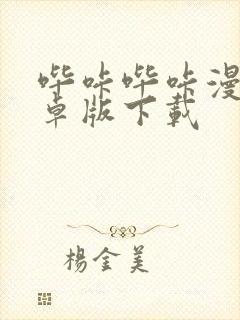 哔咔哔咔漫
卓版下载
楊金美